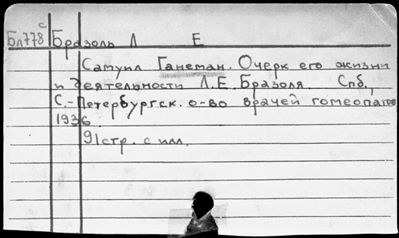 с
Бл778 Бразоль Л Е
Самуил Ганеман. Очерк его жизни
и деятельности Л.Е. Бразоля. Спб.,
С.-Петербургск. о-во врачей гомеопатов
1936.
91стр. с илл.